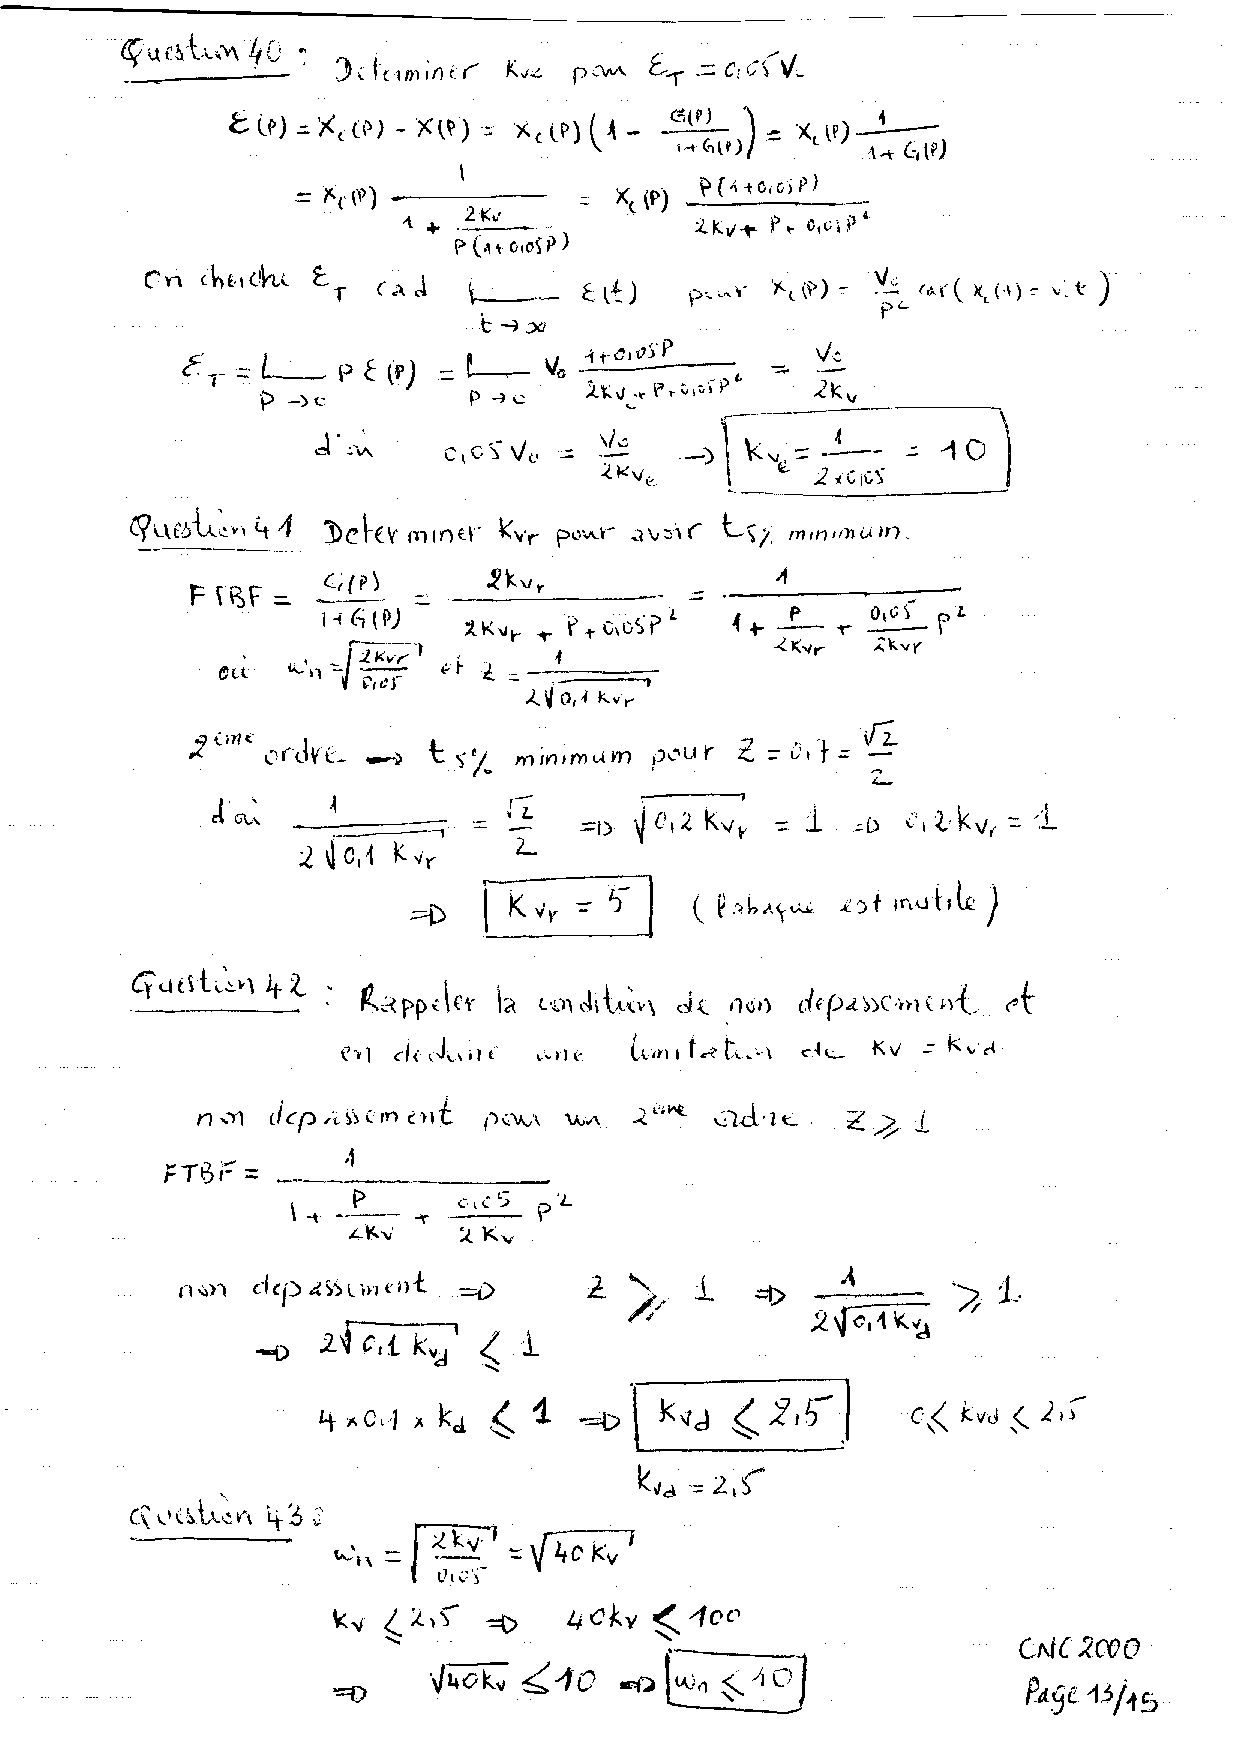 Question 40 : Determiner Kve pour ε_T = 0,05 V₀
ε(P) = X_c(P) - X(P) = X_c(P) (1 - G(P)/(1+G(P))) = X_c(P) 1/(1+G(P))
= X_c(P) 1/(1 + 2Kv/(P(1+0,05P))) = X_c(P) P(1+0,05P)/(2Kv + P + 0,05P²)
On cherche ε_T cad L ε(t) pour X_c(P) = V₀/P² car (X_c(t) = v.t)
t → ∞
ε_T = L P ε(P) = L V₀ (1+0,05P)/(2Kv + P + 0,05P²) = V₀/2Kv
P → 0 P → 0
d'où 0,05 V₀ = V₀/2Kve → Kve = 1/(2×0,05) = 10
Question 41 Determiner Kvr pour avoir t5% minimum.
FTBF = G(P)/(1+G(P)) = 2Kvr/(2Kvr + P + 0,05P²) = 1/(1 + P/2Kvr + 0,05/2Kvr P²)
où wn = √(2Kvr/0,05) et Z = 1/(2√(0,1 Kvr))
2ème ordre → t5% minimum pour Z = 0,7 = √2/2
d'où 1/(2√(0,1 Kvr)) = √2/2 ⇒ √(0,2 Kvr) = 1 ⇒ 0,2 Kvr = 1
⇒ Kvr = 5 (l'abaque est inutile)
Question 42 : Rappeler la condition de non depassement et
en deduire une limitation de Kv = Kvd
non depassement pour un 2ème ordre Z ⩾ 1
FTBF = 1/(1 + P/2Kv + 0,05/2Kv P²)
non depassement ⇒ Z ⩾ 1 ⇒ 1/(2√(0,1 Kvd)) ⩾ 1
⇒ 2√(0,1 Kvd) ⩽ 1
4 × 0,1 × Kd ⩽ 1 ⇒ Kvd ⩽ 2,5 0 ⩽ Kvd ⩽ 2,5
Kvd = 2,5
Question 43 :
wn = √(2Kv/0,05) = √(40 Kv)
Kv ⩽ 2,5 ⇒ 40Kv ⩽ 100
⇒ √(40Kv) ⩽ 10 ⇒ wn ⩽ 10
CNC 2000
Page 13/15